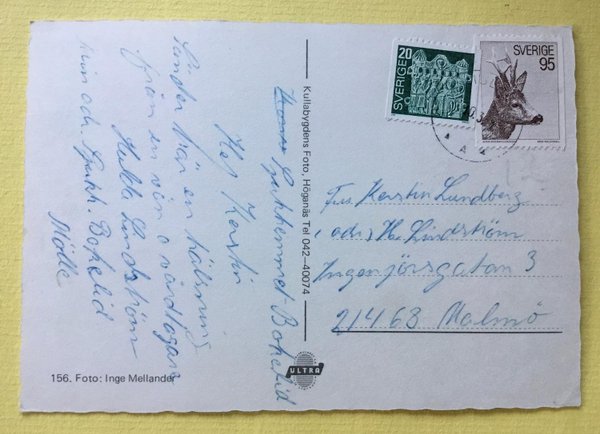 Sjukhemmet Bokelid
Hej Kerstin
Sänder här en hälsning
från en vän o vårdtagare
Hulda Lindström
hem och Sjukh. Bokelid
Mölle
Kullabygdens Foto, Höganäs Tel 042-40074
156. Foto: Inge Mellander
ULTRA
SVERIGE 20
SVERIGE 95
Fru Kerstin Lundberg
adr. Lindström
Ingenjörsgatan 3
21463 Malmö